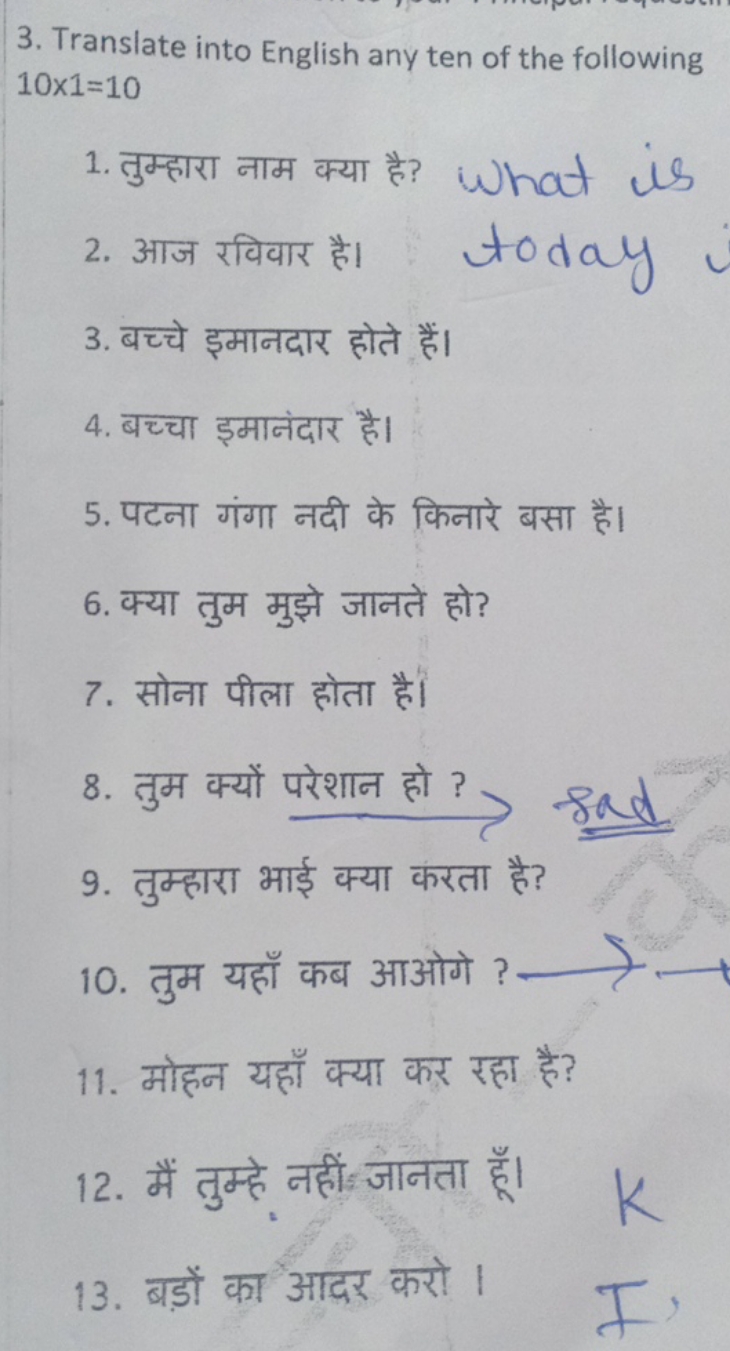 3. Translate into English any ten of the following
10x1=10
1. तुम्हारा नाम क्या है? what is
2. आज रविवार है। today
3. बच्चे इमानदार होते हैं।
4. बच्चा इमानंदार है।
5. पटना गंगा नदी के किनारे बसा है।
6. क्या तुम मुझे जानते हो?
7. सोना पीला होता है।
8. तुम क्यों परेशान हो ? sad
9. तुम्हारा भाई क्या करता है?
10. तुम यहाँ कब आओगे ?
11. मोहन यहाँ क्या कर रहा है?
12. मैं तुम्हे नहीं जानता हूँ। K
13. बड़ों का आदर करो । I